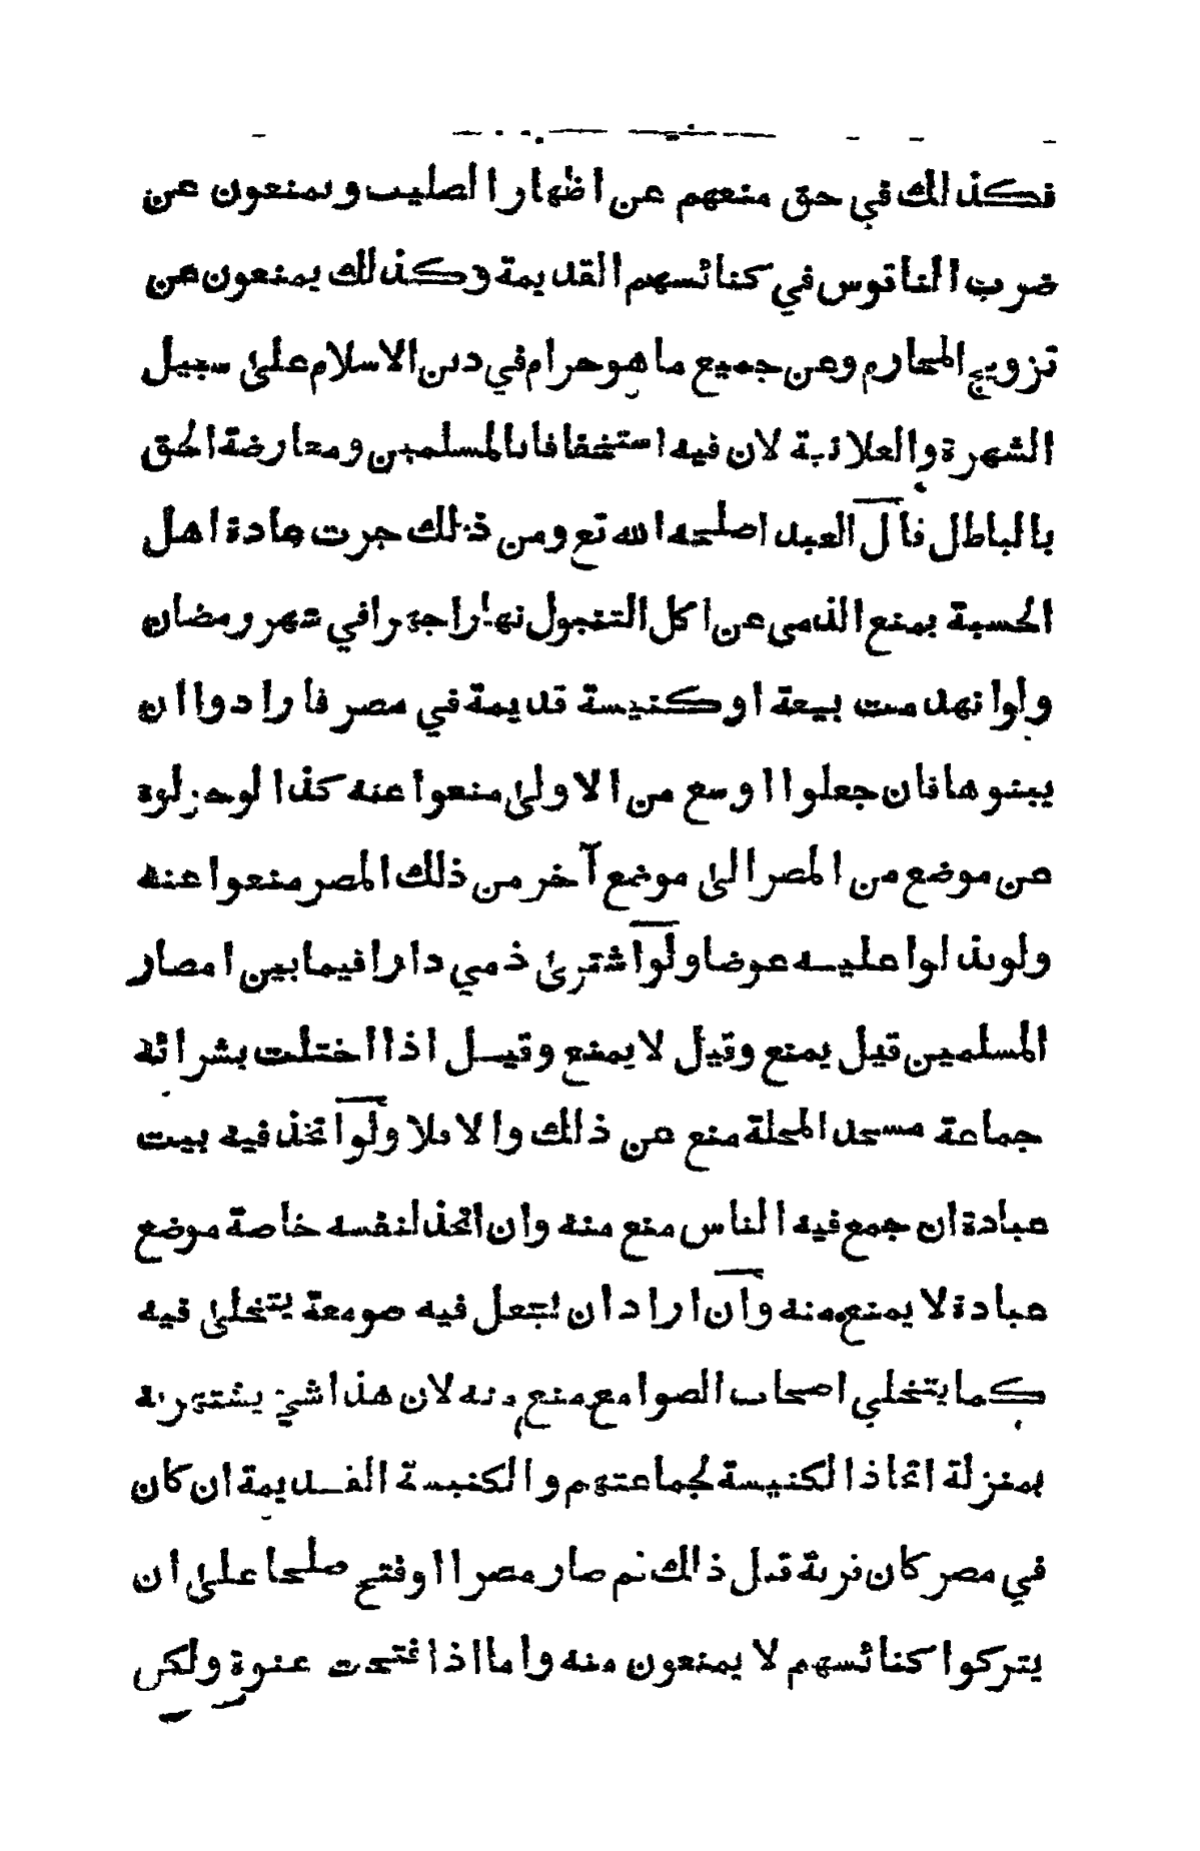 فكذلك في حق منعهم عن اظهار الصليب ويمنعون عن
ضرب الناقوس في كنائسهم القديمة وكذلك يمنعون عن
تزويج المحارم وعن جميع ما هو حرام في دين الاسلام على سبيل
الشهرة والعلانية لان فيه استخفافا بالمسلمين ومعارضة الحق
بالباطل قال العبد اصلحه الله تع ومن ذلك جرت عادة اهل
الحسبة بمنع الذمي عن اكل التنجول نهارا جهرا في شهر رمضان
ولو انهدمت بيعة او كنيسة قديمة في مصر فارادوا ان
يبنوها فان جعلوا اوسع من الاولى منعوا عنه كذا لو
عن موضع من المصر الى موضع آخر من ذلك المصر منعوا عنه
ولو بذلوا عليه عوضا ولو اشترى ذمي دارا فيما بين امصار
المسلمين قيل يمنع وقيل لا يمنع وقيل اذا اختلت بشرائه
جماعة مسجد المحلة منع عن ذلك والا فلا ولو اتخذ فيه بيت
عبادة ان جمع فيه الناس منع منه وان اتخذ لنفسه خاصة موضع
عبادة لا يمنع منه وان اراد ان يجعل فيه صومعة يتخلى فيه
كما يتخلى اصحاب الصوامع منع منه لان هذا شيئ يشتهر به
بمنزلة اتخاذ الكنيسة لجماعتهم والكنيسة القديمة ان كان
في مصر كان قرية قبل ذلك ثم صار مصرا او فتح صلحا على ان
يتركوا كنائسهم لا يمنعون منه واما اذا فتحت عنوة ولكن